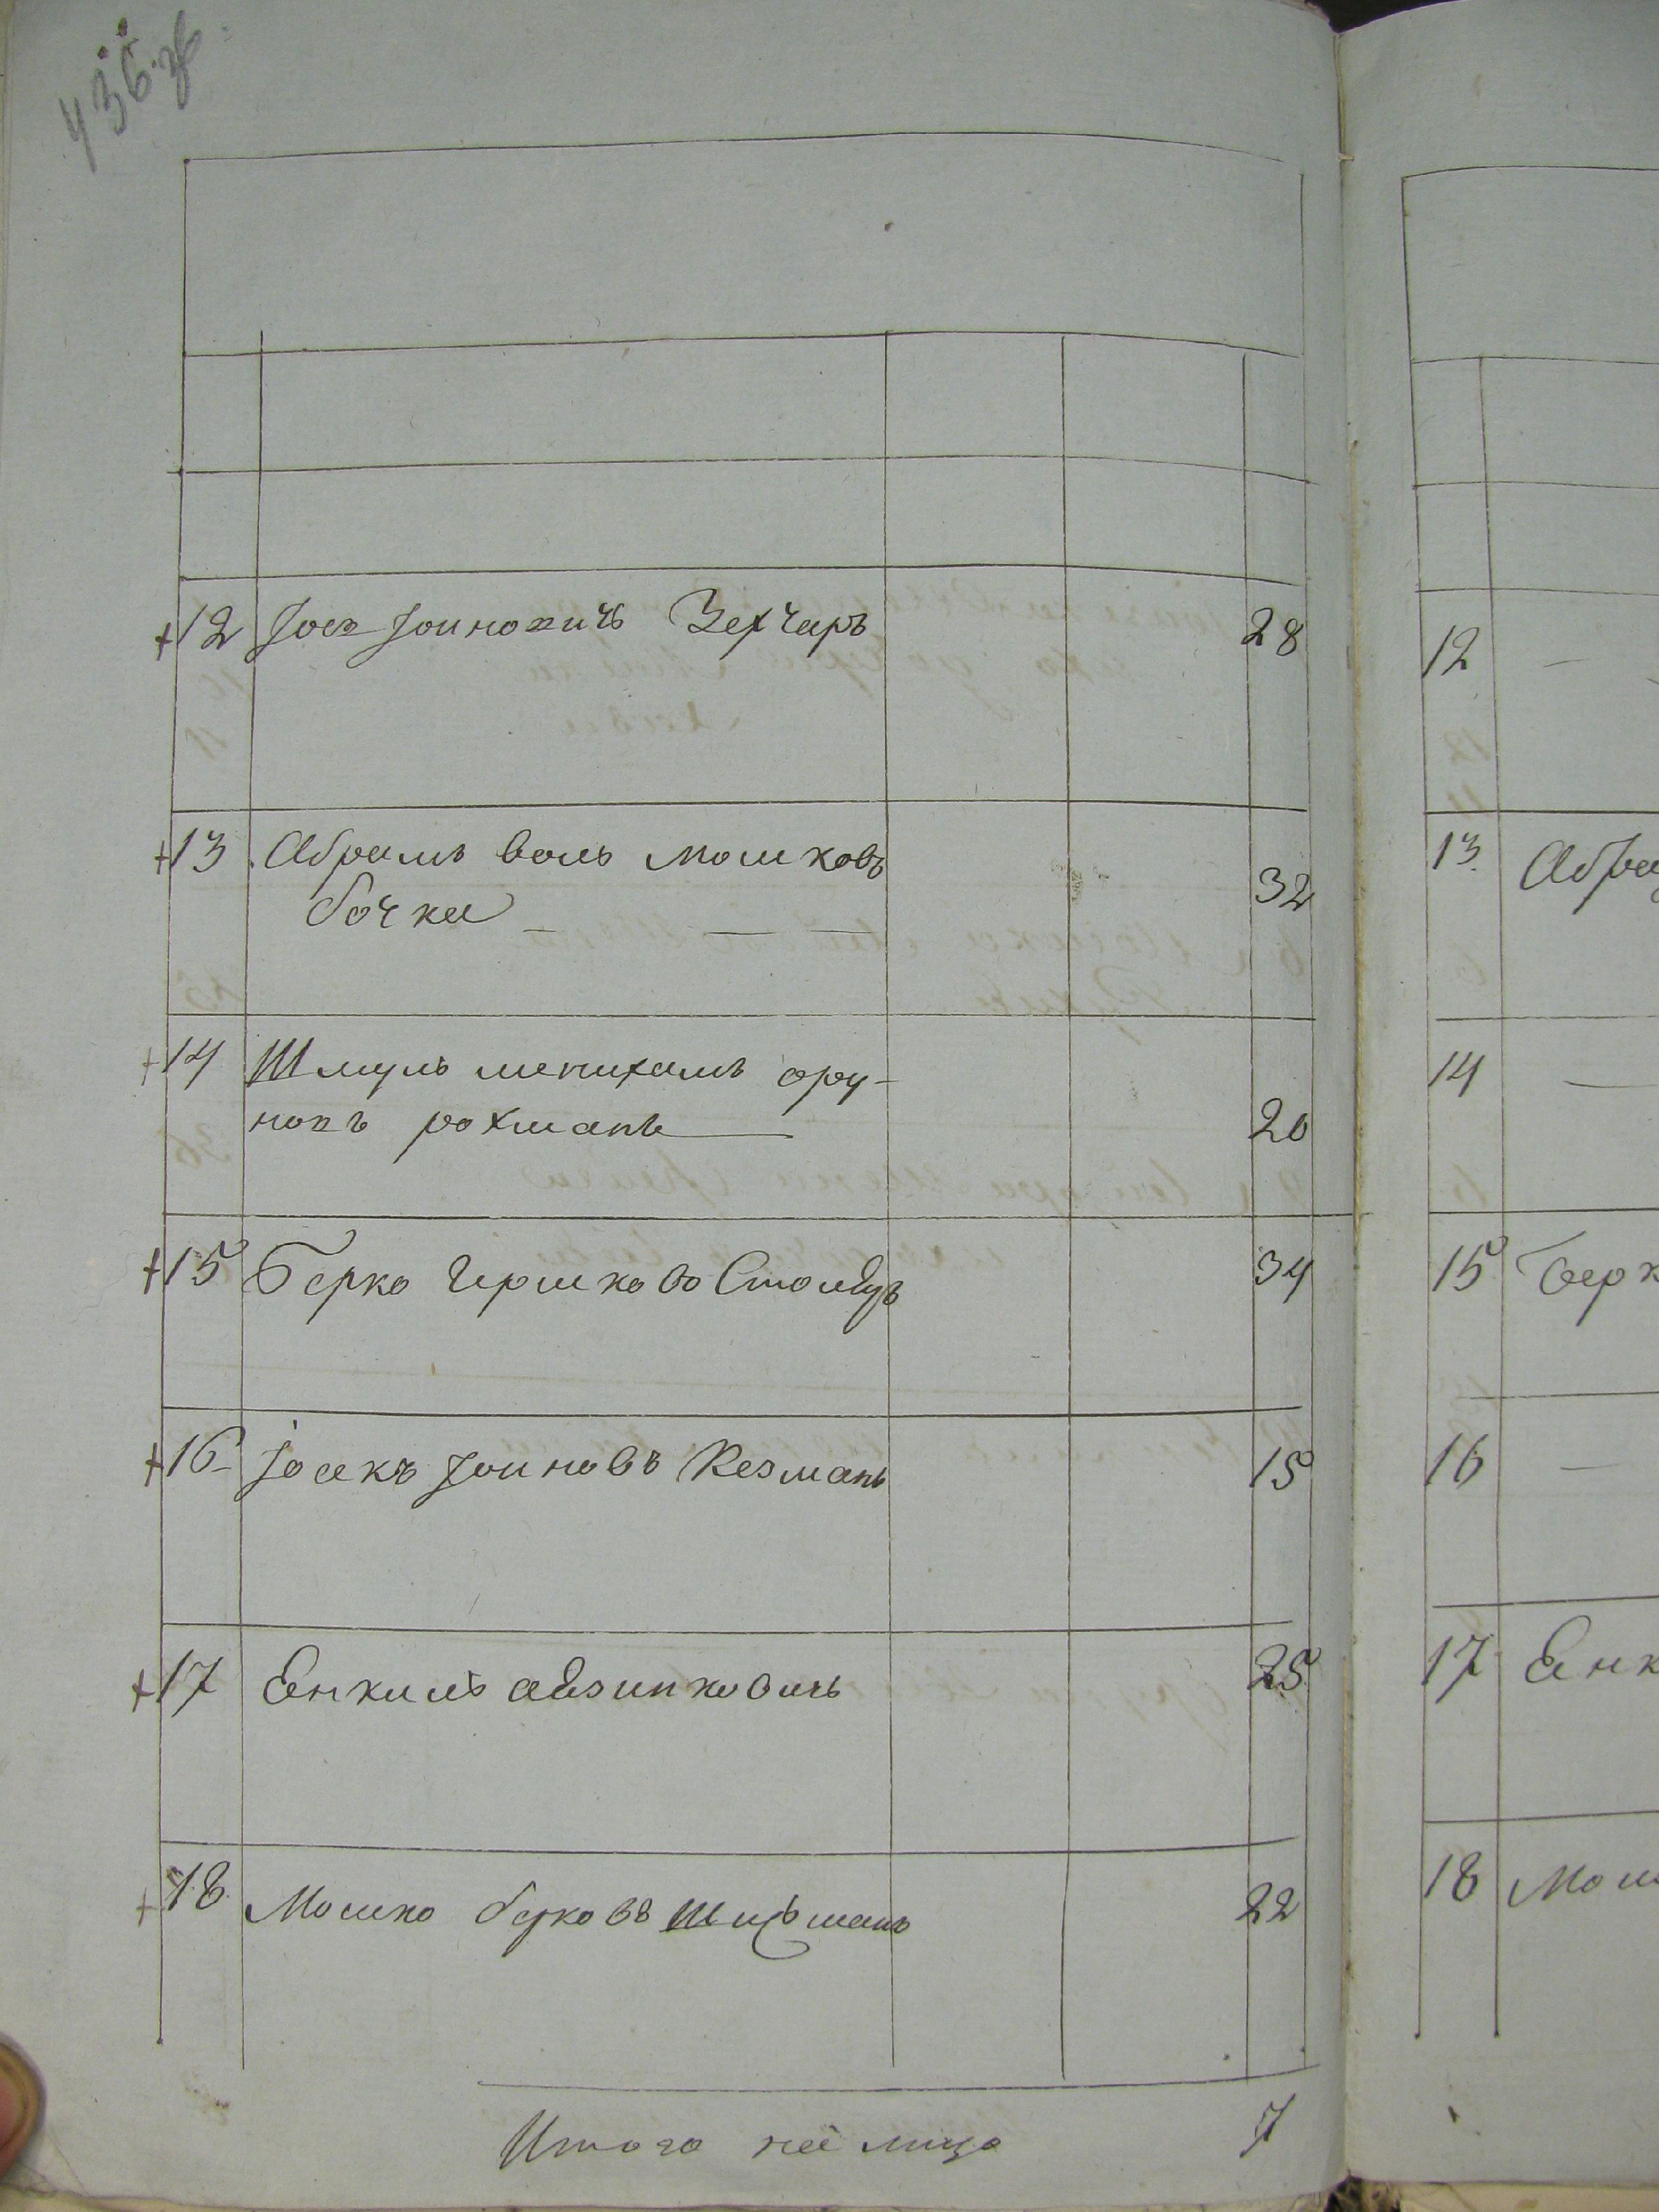 436.зв.
+12 Іось Іоиновичъ Зехчаръ 28
+13 Абрамъ волъ мошковъ
бочка — — — 32
+14 Шмуль менихамъ ору-
новъ рохманъ — 20
+15 Берко Гершково Столяръ 34
+16 Іосекъ Іоиновъ Кезманъ 15
+17 Енкиль айзиковичъ 25
+18 Мошко берковъ 22
Итого на лицо 7
12 —
13 Абра
14 —
15 Берк
16 —
17 Енк
18 Мош